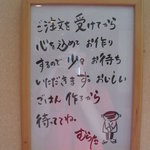 ご注文を受けてから
心を込めてお作り
するので少々お待ち
いただきます。おいしい
ごはん作るから
待っててね。
むらた